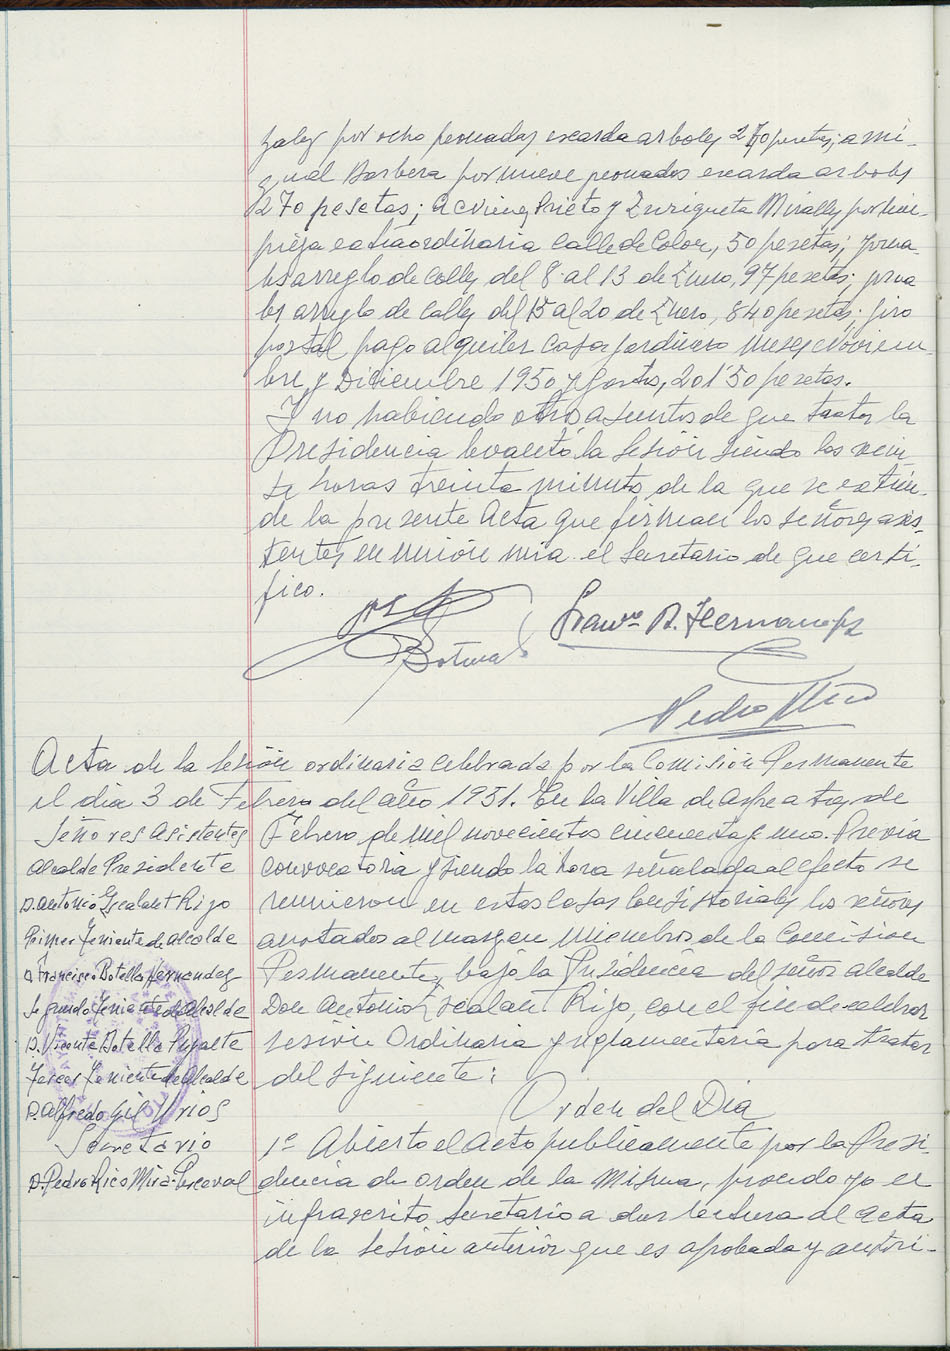 zalez por ocho peonadas escarda arboles 270 pesetas; a Mi-
guel Barbera por nueve peonadas escarda arboles
270 pesetas; a Nieves Prieto y Enriqueta Miralles por lim-
pieza extraordinaria calle de Colon, 50 pesetas; jorna-
les arreglo de calles del 8 al 13 de Enero, 97 pesetas; jorna
les arreglo de calles del 15 al 20 de Enero, 840 pesetas; giro
postal pago alquiler casa jardinero meses Noviem-
bre y Diciembre 1950 y gastos, 201'50 pesetas.
Y no habiendo otros asuntos de que tratar la
Presidencia levantó la sesión siendo las vein
te horas treinta minutos de la que se extien-
de la presente Acta que firman los señores asis-
tentes en unión mia el Secretario de que certi-
fico.
Botella
Franco B. Hernandez
Pedro Rico
Acta de la Sesión ordinaria celebrada por la Comisión Permanente
el dia 3 de Febrero del año 1951. En la Villa de Aspe a tres de
Señores Asistentes
Alcalde Presidente
D. Antonio Gealant Rijo
Primer Teniente de Alcalde
D. Francisco Botella Hernandez
Segundo Teniente de Alcalde
D. Vicente Botella Puxalte
Tercer Teniente de Alcalde
D. Alfredo Gil Urios
Secretario
D. Pedro Rico Mira-Perceval
Febrero de mil novecientos cincuenta y uno. Previa
convocatoria y siendo la hora señalada al efecto se
reunieron en estas Casas Consistoriales los señores
anotados al margen miembros de la Comision
Permanente, bajo la Presidencia del señor Alcalde
Don Antonio Gealant Rijo, con el fin de celebrar
sesión Ordinaria y reglamentaria para tratar
del siguiente:
Orden del Dia
1º Abierto el acto publicamente por la Presi-
dencia de orden de la misma, procedo yo el
infrascrito Secretario a dar lectura al acta
de la sesión anterior que es aprobada y autori-